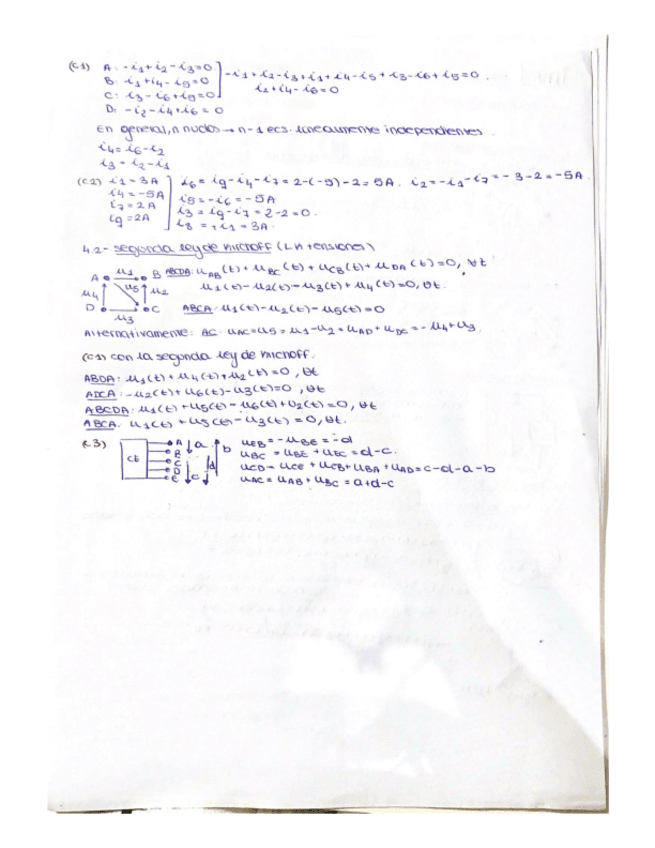 (C1) A: -i1+i2-i3=0
B: i1+i4-i5=0
C: i3-i6+i5=0
-i1+i2-i3+i1+i4-i5+i3-i6+i5=0.
i2+i4-i6=0
D: -i2-i4+i6=0
En general, n nudos → n-1 ecs. linealmente independientes.
i4=i6-i2
i3=i2-i1
(C2) i1=3A
i4=-5A
i7=2A
i9=2A
i6=i9-i4-i7=2-(-5)-2=5A. i2=-i1-i7=-3-2=-5A.
i5=-i6=-5A
i3=i9-i7=2-2=0.
i8=+i1=3A.
4.2- segunda ley de Kirchoff (LK tensiones)
A u1 B
u4 u5 u2
D u3 C
ABCDA: uAB(t)+uBC(t)+uCB(t)+uDA(t)=0, ∀t
u1(t)-u2(t)-u3(t)+u4(t)=0, ∀t.
ABCA: u1(t)-u2(t)-u5(t)=0
Alternativamente: AC: uAC=u5=u1-u2=uAD+uDC=-u4+u3.
(C1) con la segunda ley de Kirchoff.
ABDA: u1(t)+u4(t)+u2(t)=0, ∀t
ADCA: -u2(t)+u6(t)-u3(t)=0, ∀t
ABCDA: u1(t)+u5(t)-u6(t)+u2(t)=0, ∀t
ABCA: u1(t)+u5(t)-u3(t)=0, ∀t.
(C3) ct A B C D E a b c d
uEB=-uBE=-d
uBC=uBE+uEC=d-c.
uCD=uCE+uEB+uBA+uAD=c-d-a-b
uAC=uAB+uBC=a+d-c